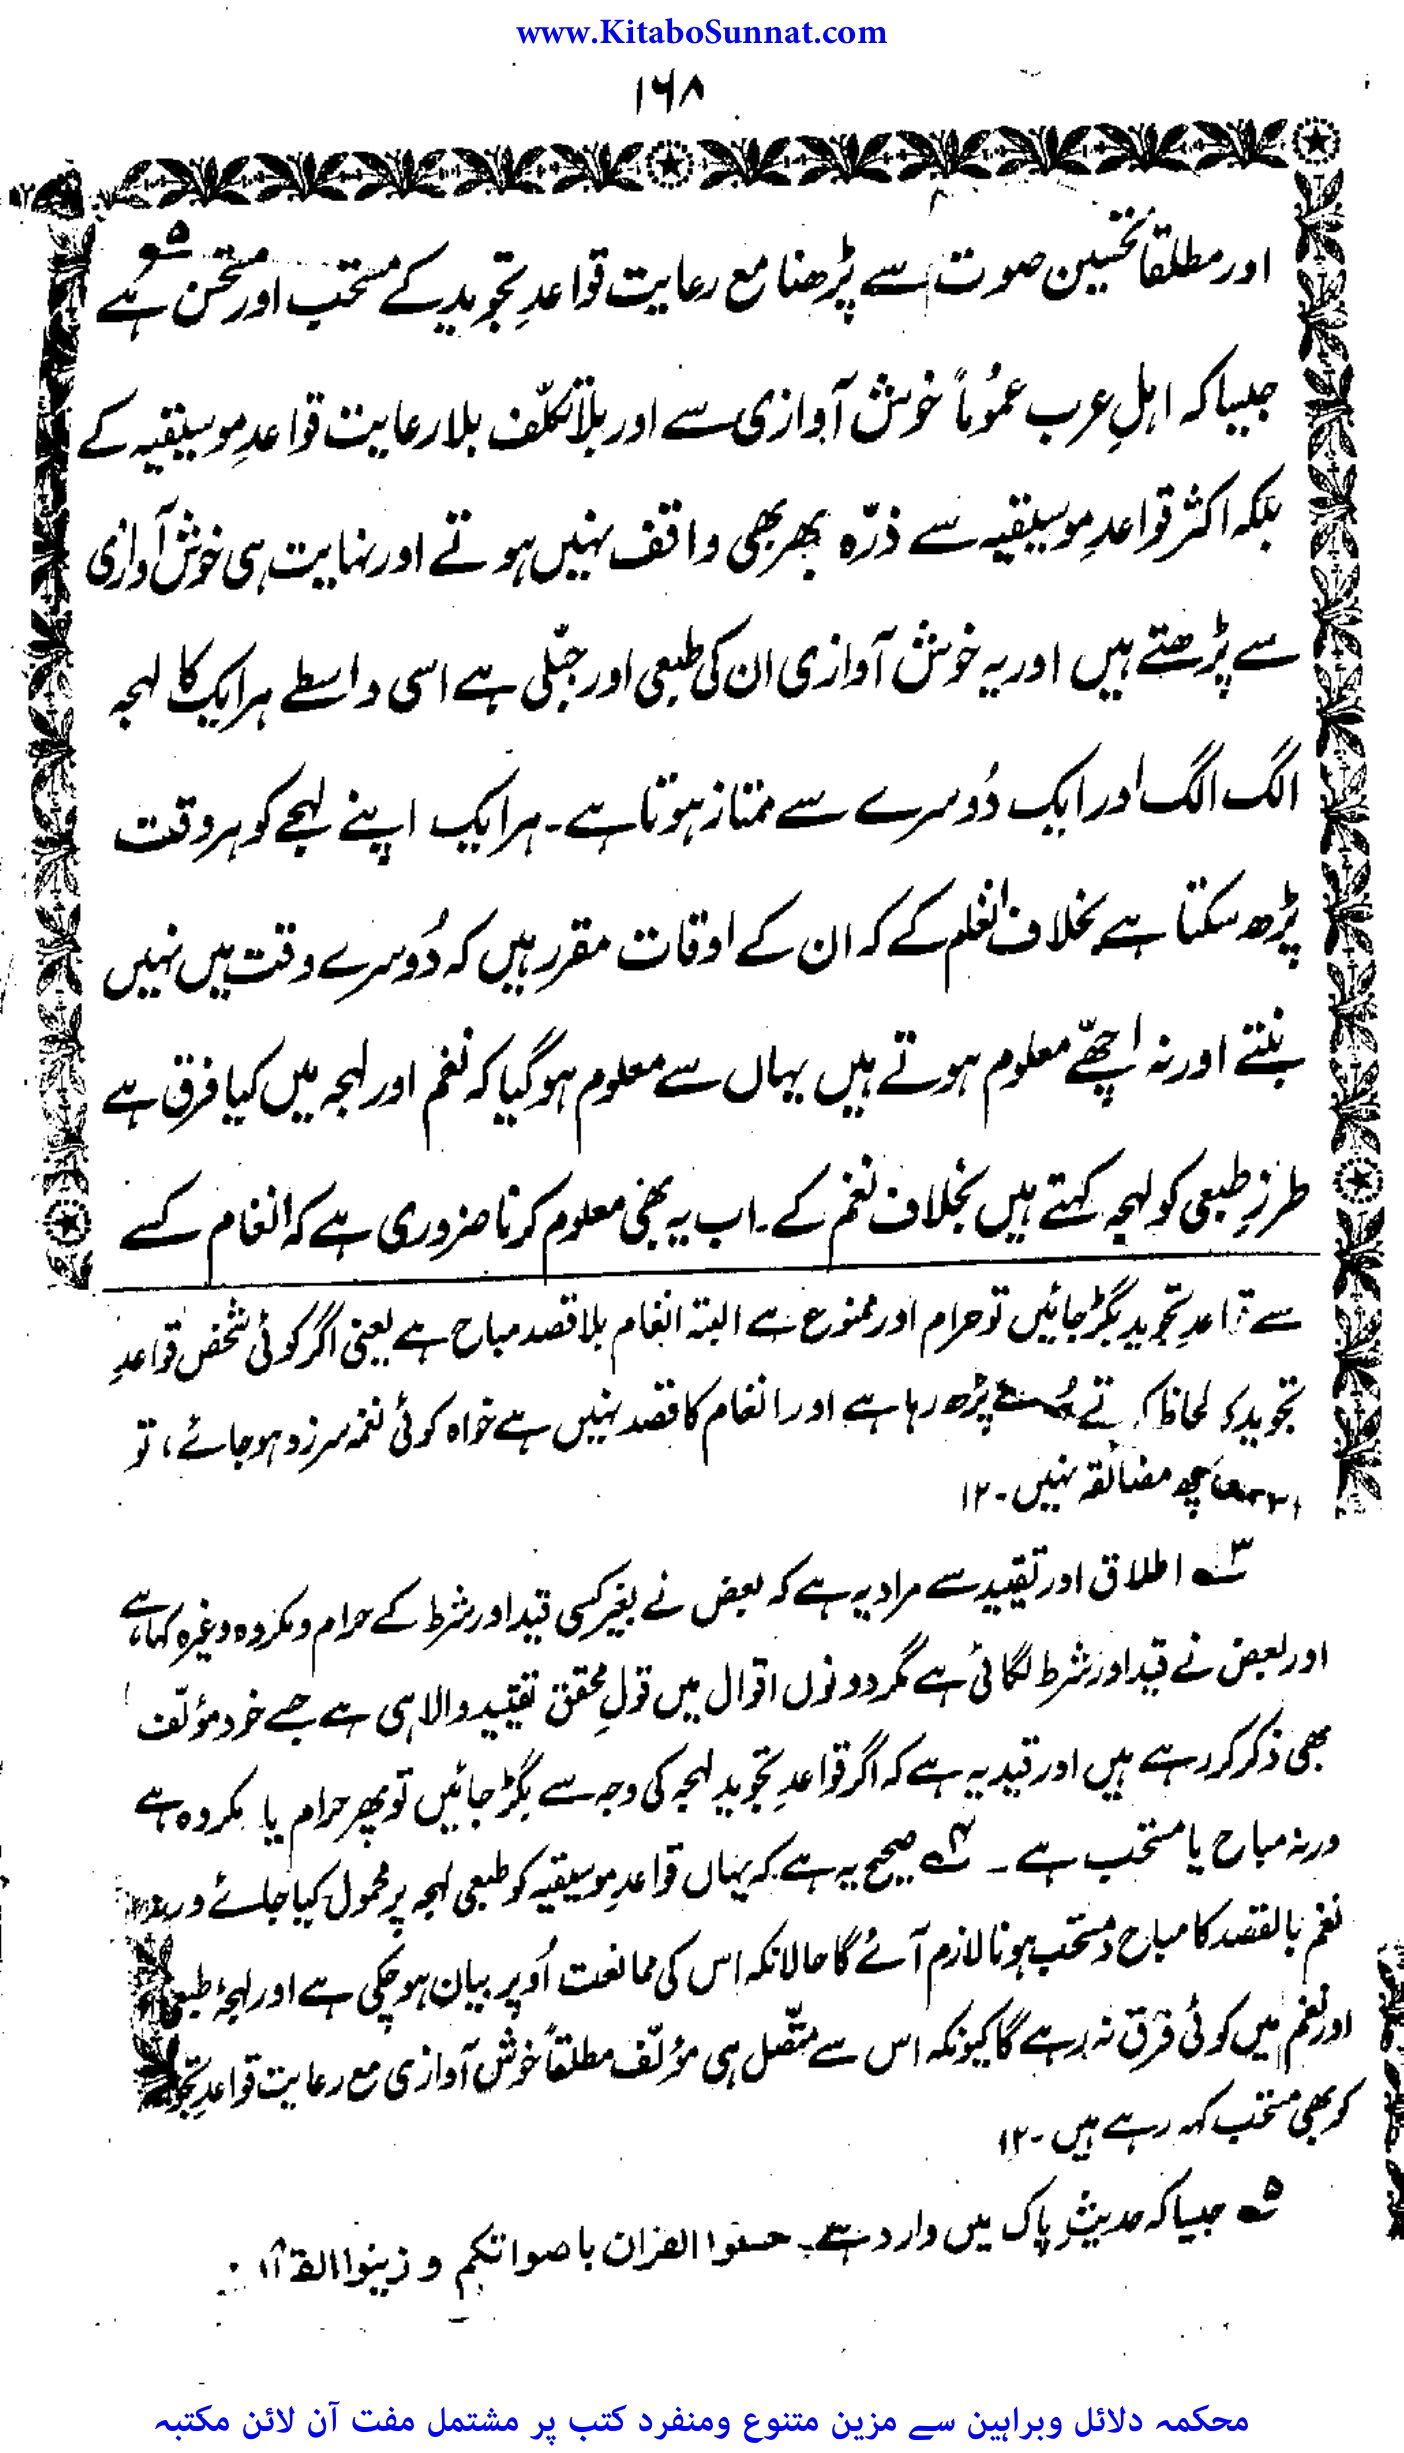 www.KitaboSunnat.com
۱۶۸
اور مطلقاً تحسین صوت سے پڑھنا مع رعایت قواعدِ تجوید کے مستحب اور مستحسن ہے ۵
جیسا کہ اہلِ عرب عمُوماً خوش آوازی سے اور بلا تکلّف بلا رعایت قواعدِ موسیقیہ کے
بلکہ اکثر قواعدِ موسیقیہ سے ذرّہ بھر بھی واقف نہیں ہوتے اور نہایت ہی خوش آوازی
سے پڑھتے ہیں اور یہ خوش آوازی ان کی طبعی اور جبّلی ہے اسی واسطے ہر ایک کا لہجہ
الگ الگ اور ایک دُوسرے سے ممتاز ہوتا ہے۔ ہر ایک اپنے لہجے کو ہر وقت
پڑھ سکتا ہے بخلاف انغام کے کہ ان کے اوقات مقرر ہیں کہ دُوسرے وقت میں نہیں
بنتے اور نہ اچھّے معلوم ہوتے ہیں یہاں سے معلوم ہوگیا کہ نغم اور لہجہ میں کیا فرق ہے
طرزِ طبعی کو لہجہ کہتے ہیں بخلاف نغم کے۔ اب یہ بھی معلوم کرنا ضروری ہے کہ انغام کسے
سے قواعدِ تجوید بگڑ جائیں تو حرام اور ممنوع ہے البتہ انغام بلا قصد مباح ہے یعنی اگر کوئی شخص قواعدِ
تجوید کا لحاظ کرتے ہُوئے پڑھ رہا ہے اور انغام کا قصد نہیں ہے خواہ کوئی نغمہ سرزد ہوجائے، تو
کچھ مضائقہ نہیں۔ ۱۲
۳ اطلاق اور تقیید سے مراد یہ ہے کہ بعض نے بغیر کسی قید اور شرط کے حرام و مکروہ وغیرہ کہا ہے
اور بعض نے قید اور شرط لگائی ہے مگر دونوں اقوال میں قولِ محقق تقیید والا ہی ہے جسے خود مؤلّف
بھی ذکر کر رہے ہیں اور قید یہ ہے کہ اگر قواعدِ تجوید لہجہ کی وجہ سے بگڑ جائیں تو پھر حرام یا مکروہ ہے
ورنہ مباح یا مستحب ہے ۔ ۴ صحیح یہ ہے کہ یہاں قواعدِ موسیقیہ کو طبعی لہجہ پر محمول کیا جائے ورنہ
نغم بالقصد کا مباح و مستحب ہونا لازم آئے گا حالانکہ اس کی ممانعت اُوپر بیان ہوچکی ہے اور لہجۂ طبعی
اور نغم میں کوئی فرق نہ رہے گا کیونکہ اس سے متّصل ہی مؤلّف مطلقاً خوش آوازی مع رعایت قواعدِ تجوید
کو بھی مستحب کہہ رہے ہیں۔ ۱۲
۵ جیسا کہ حدیثِ پاک میں وارد ہے۔ حسنوا القران باصواتکم و زینوا القرآن
محکمہ دلائل وبراہین سے مزین متنوع ومنفرد کتب پر مشتمل مفت آن لائن مکتبہ